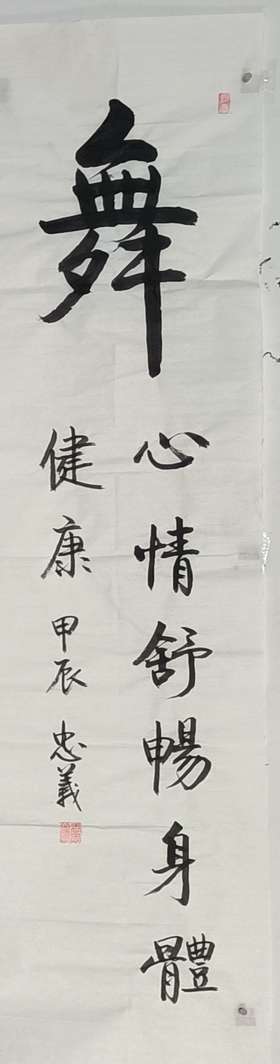 舞
心情舒暢身體
健康 甲辰 忠義